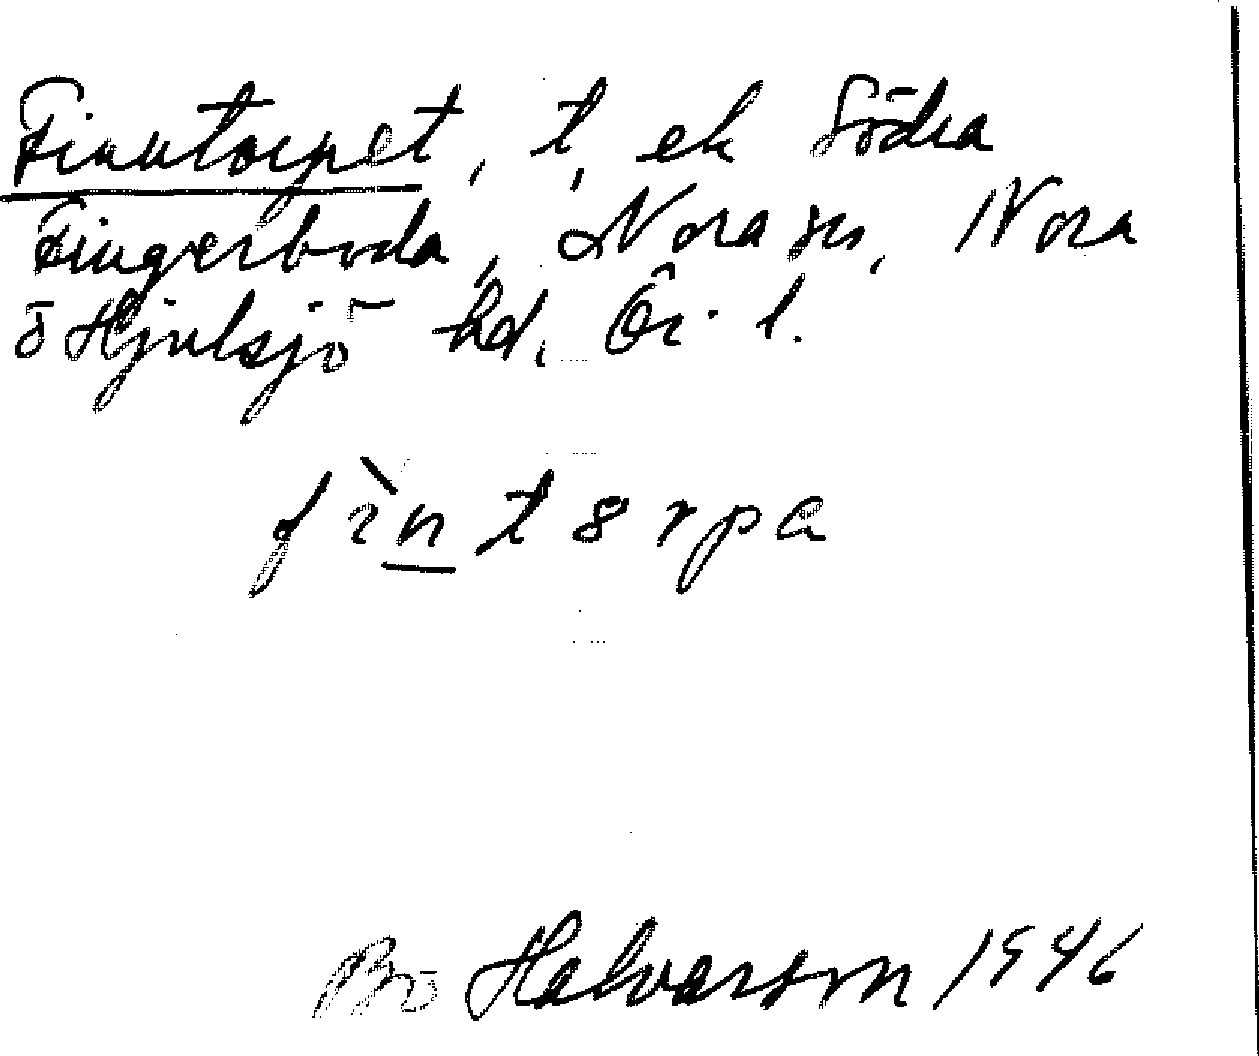 Finntorpet, t, ek Södra
Fingerboda, Nora sn, Nora
o Hjulsjö hd, Ör. l.
fìntɞrpa
Bo Halvarson 1946